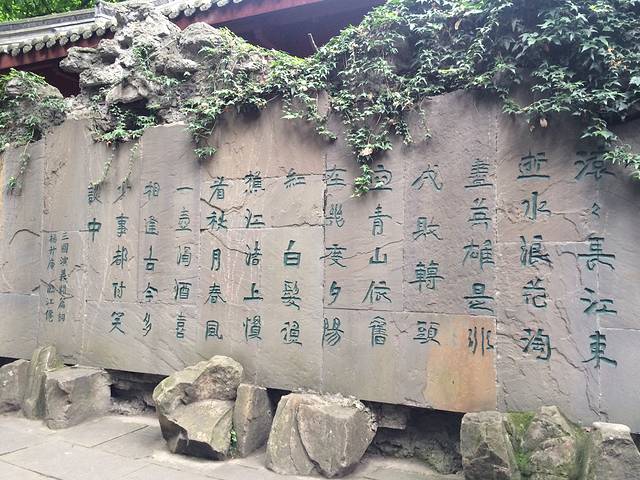 滚々長江東
逝水浪花淘
盡英雄是非
成敗轉頭
空青山依舊
在幾度夕陽
紅 白髮漁
樵江渚上慣
看秋月春風
一壺濁酒喜
相逢古今多
少事都付笑
談中
三國演義詞
楊升庵 臨江僊